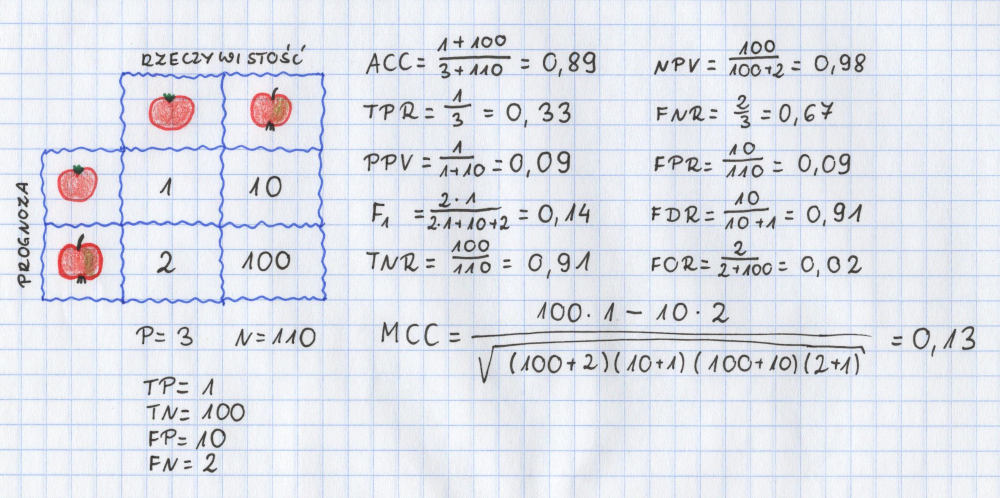 RZECZYWISTOŚĆ
PROGNOZA
1 10
2 100
P = 3 N = 110
TP = 1
TN = 100
FP = 10
FN = 2
ACC = \frac{1+100}{3+110} = 0,89
TPR = \frac{1}{3} = 0,33
PPV = \frac{1}{1+10} = 0,09
F_1 = \frac{2·1}{2·1+10+2} = 0,14
TNR = \frac{100}{110} = 0,91
NPV = \frac{100}{100+2} = 0,98
FNR = \frac{2}{3} = 0,67
FPR = \frac{10}{110} = 0,09
FDR = \frac{10}{10+1} = 0,91
FOR = \frac{2}{2+100} = 0,02
MCC = \frac{100·1 - 10·2}{\sqrt{(100+2)(10+1)(100+10)(2+1)}} = 0,13